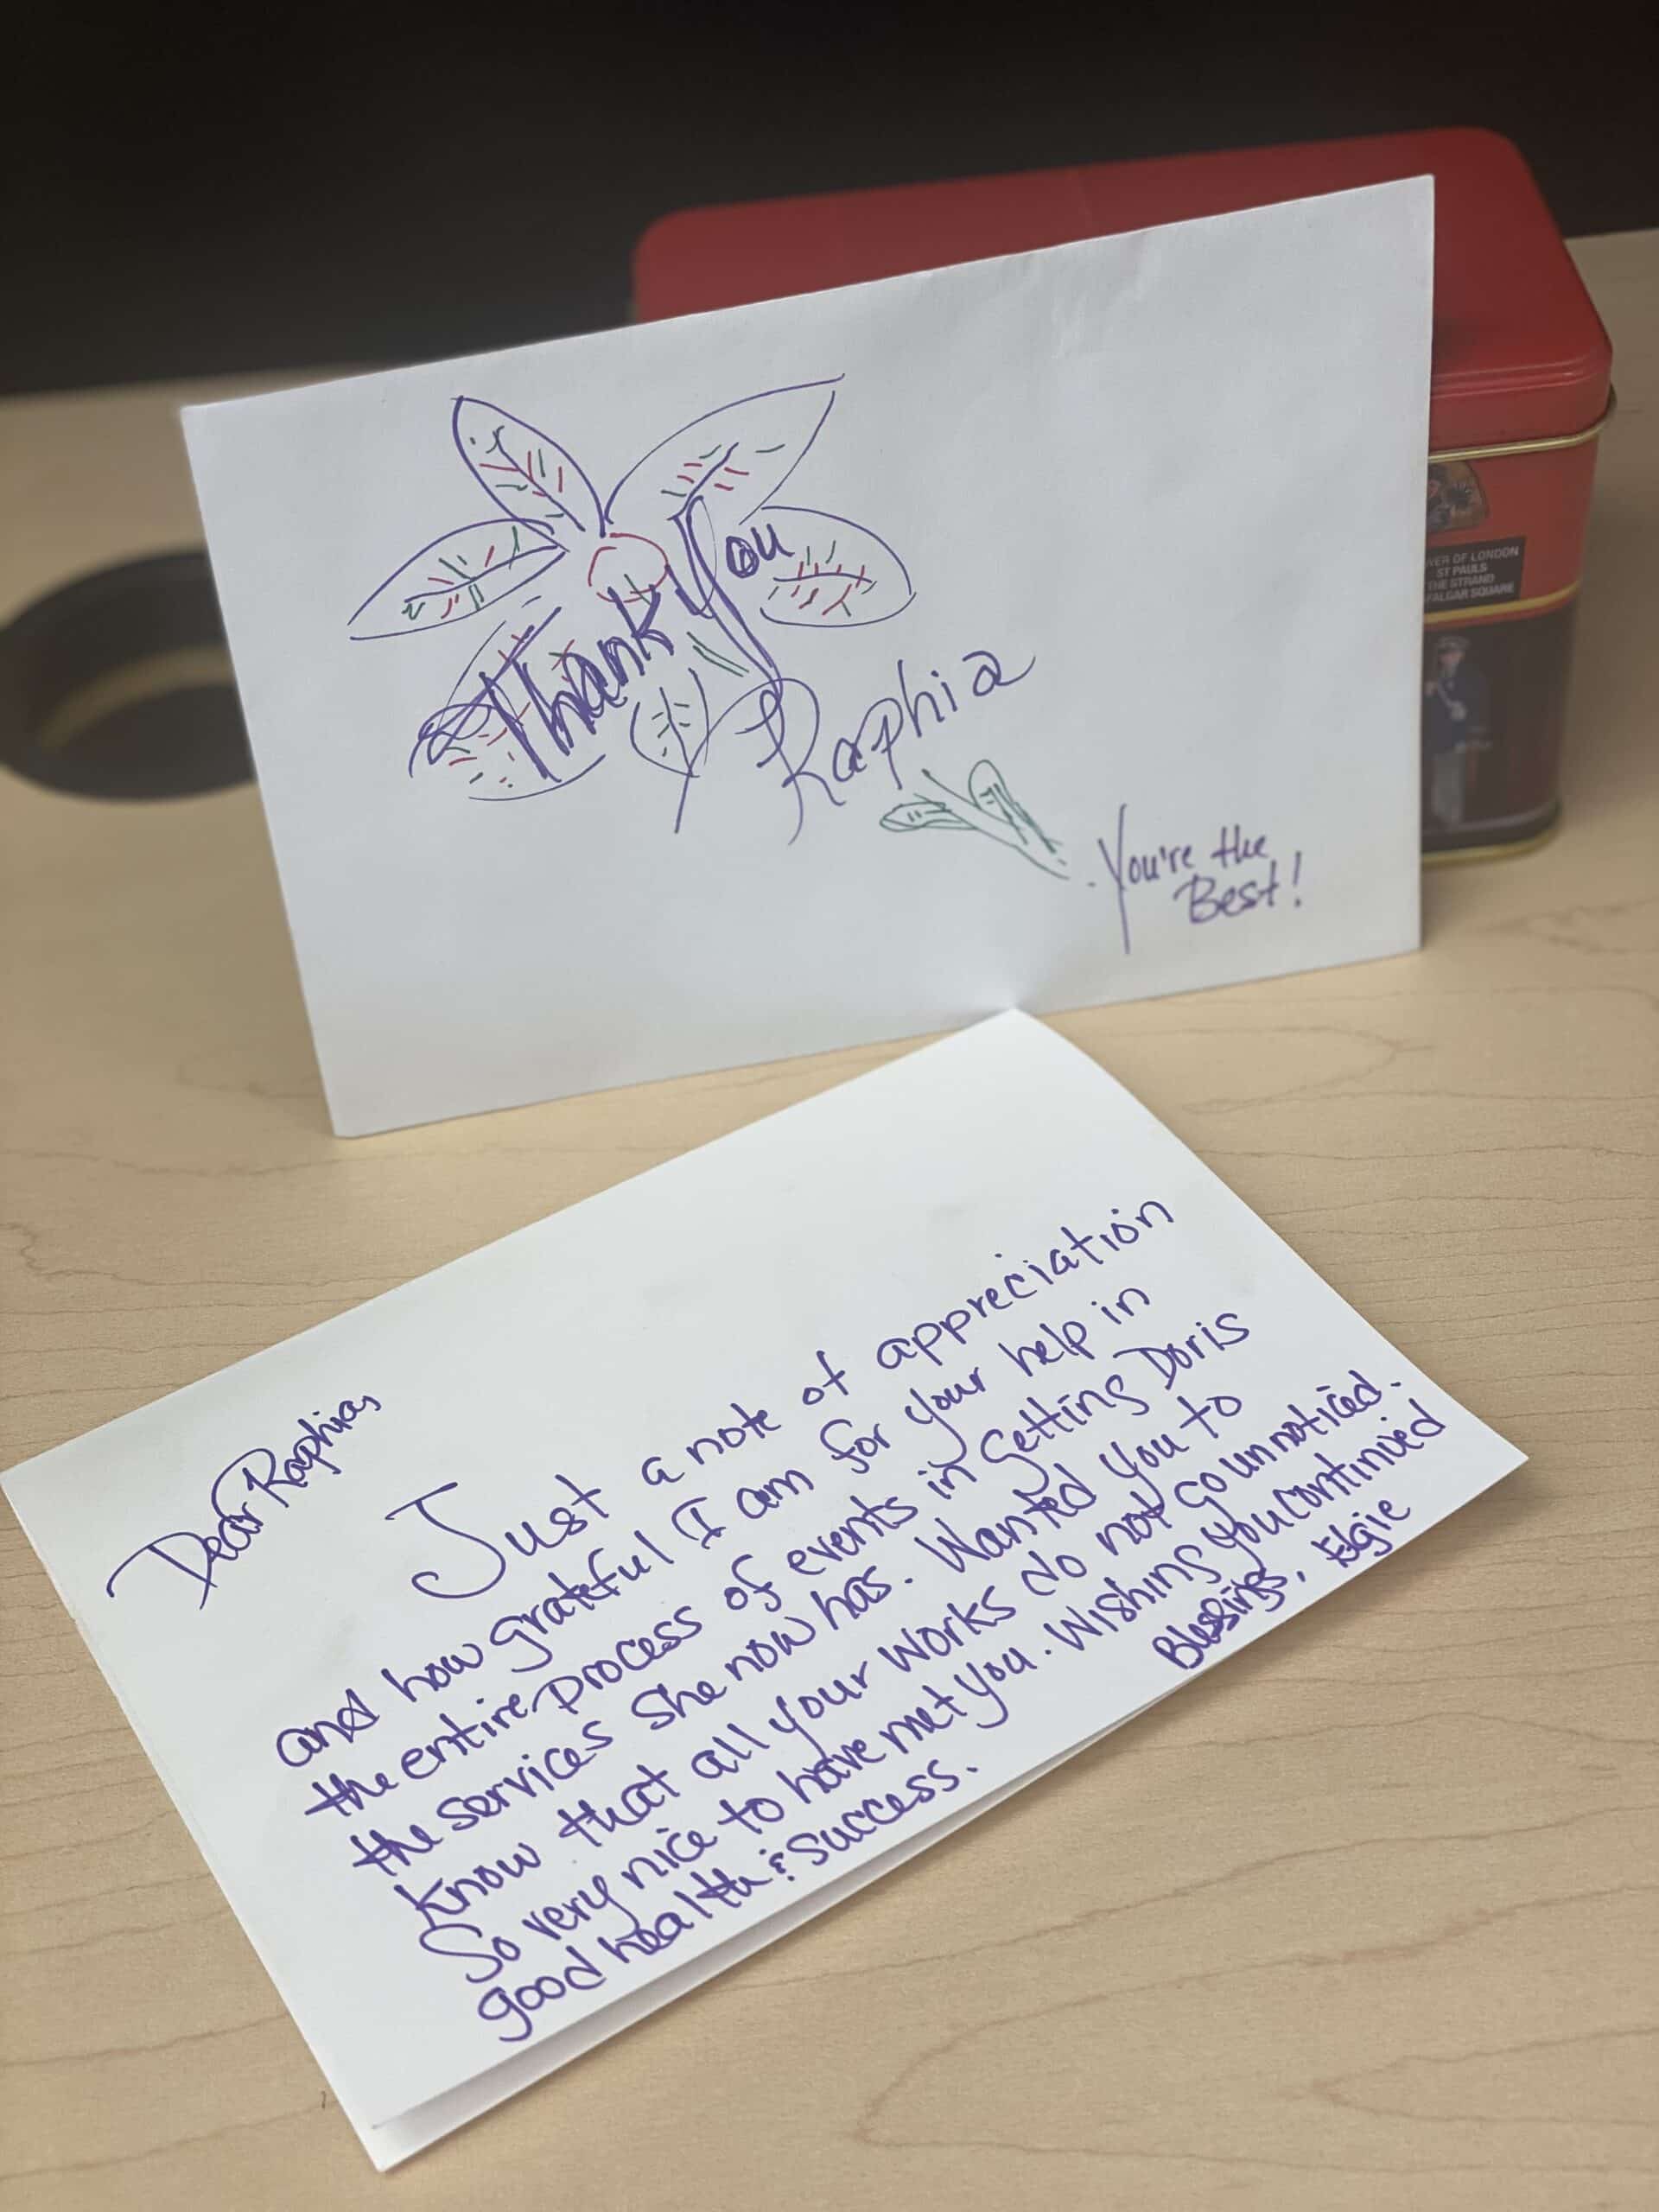 Thank You
Raphia
You're the
Best!
WER OF LONDON
ST PAULS
THE STRAND
FALGAR SQUARE
Dear Raphia,
Just a note of appreciation
and how grateful I am for your help in
the entire process of events in getting Doris
the services she now has. Wanted you to
know that all your works do not go unnoticed.
So very nice to have met you. Wishing you continued
good health & success.
Blessings, Elgie